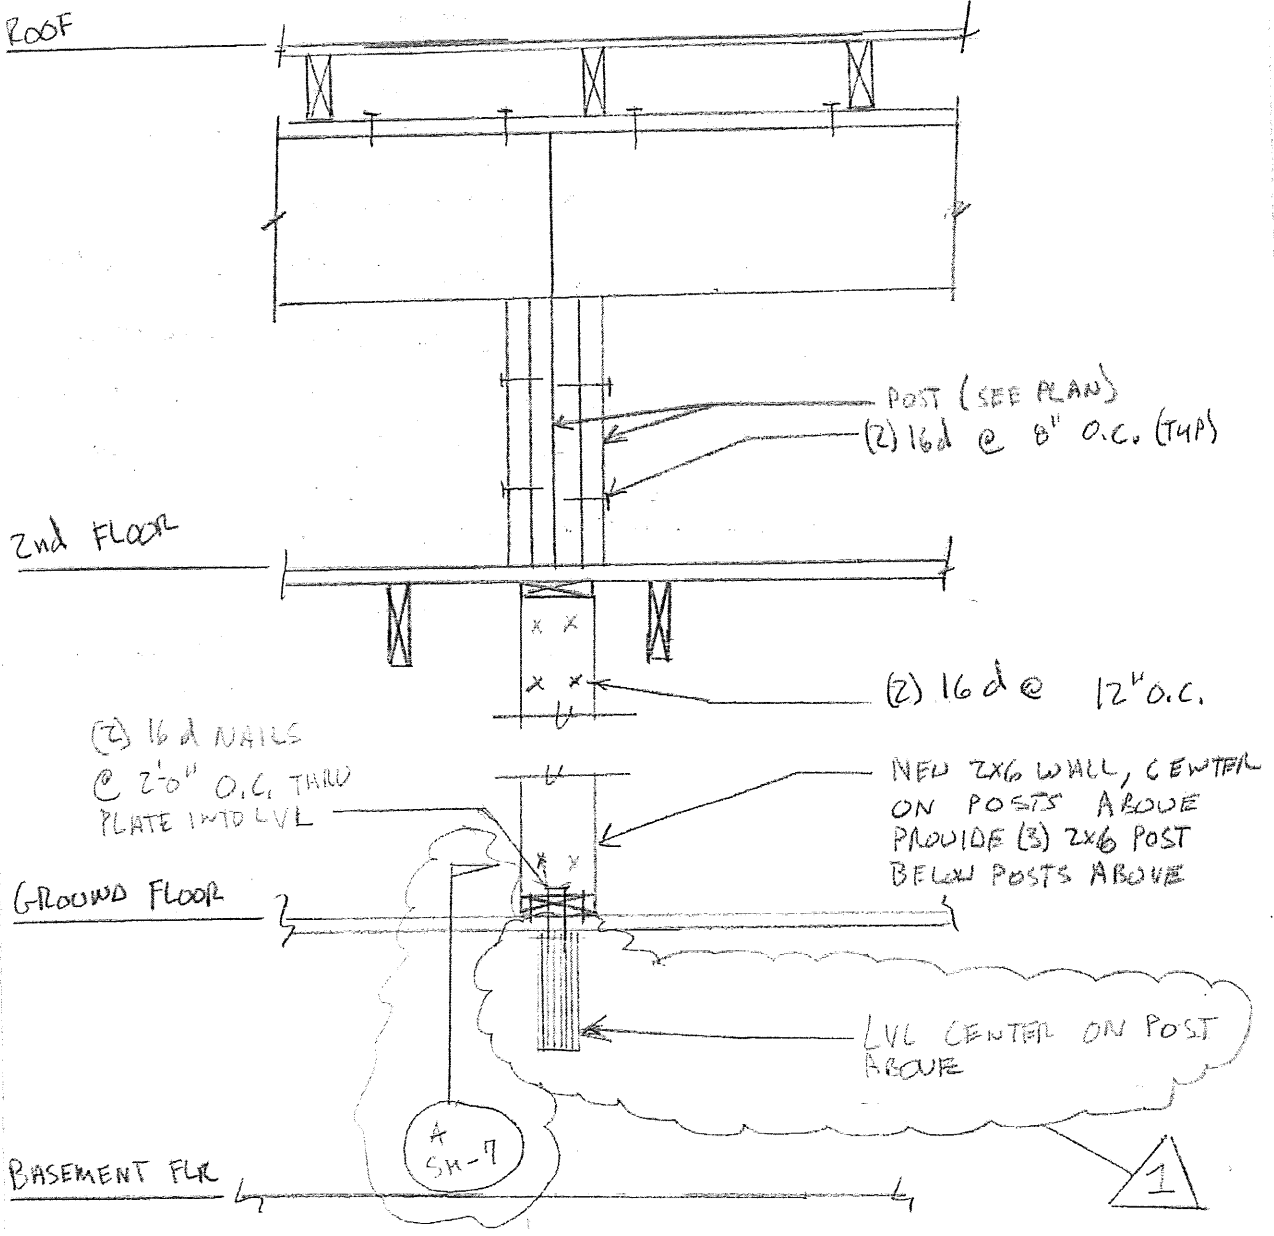 ROOF
POST (SEE PLAN)
(2) 16d @ 8" O.C. (TYP)
2nd FLOOR
(2) 16d @ 12" O.C.
(2) 16d NAILS
@ 2'-0" O.C. THRU
PLATE INTO LVL
NEW 2X6 WALL, CENTER
ON POSTS ABOVE
PROVIDE (3) 2X6 POST
BELOW POSTS ABOVE
GROUND FLOOR
LVL CENTER ON POST
ABOVE
A
SH-7
1
BASEMENT FLR